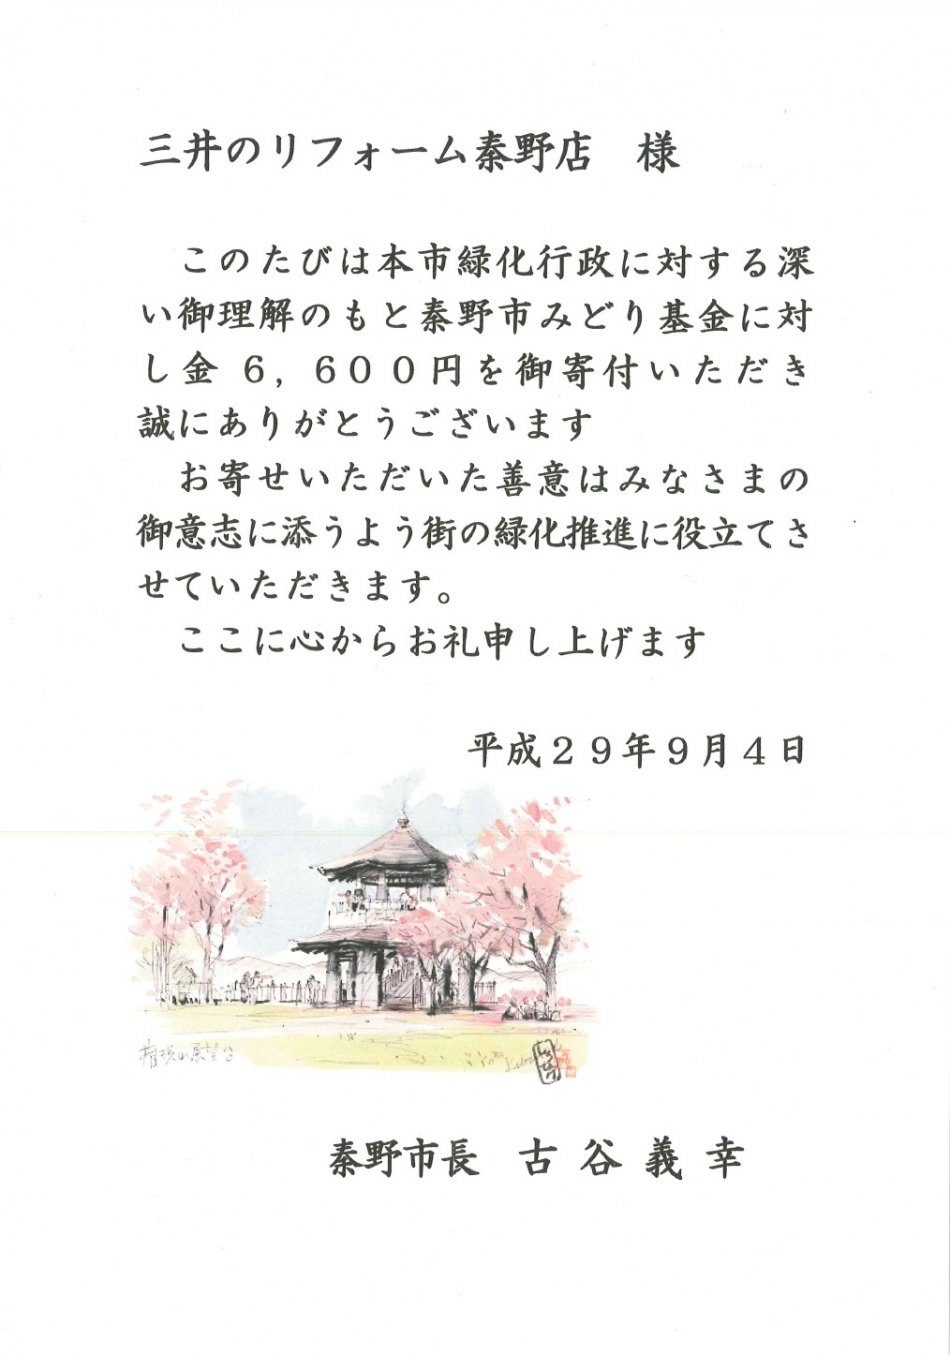 三井のリフォーム秦野店　様
このたびは本市緑化行政に対する深
い御理解のもと秦野市みどり基金に対
し金６，６００円を御寄付いただき
誠にありがとうございます
お寄せいただいた善意はみなさまの
御意志に添うよう街の緑化推進に役立てさ
せていただきます。
ここに心からお礼申し上げます
平成２９年９月４日
権現山展望台
秦野市長　古谷義幸